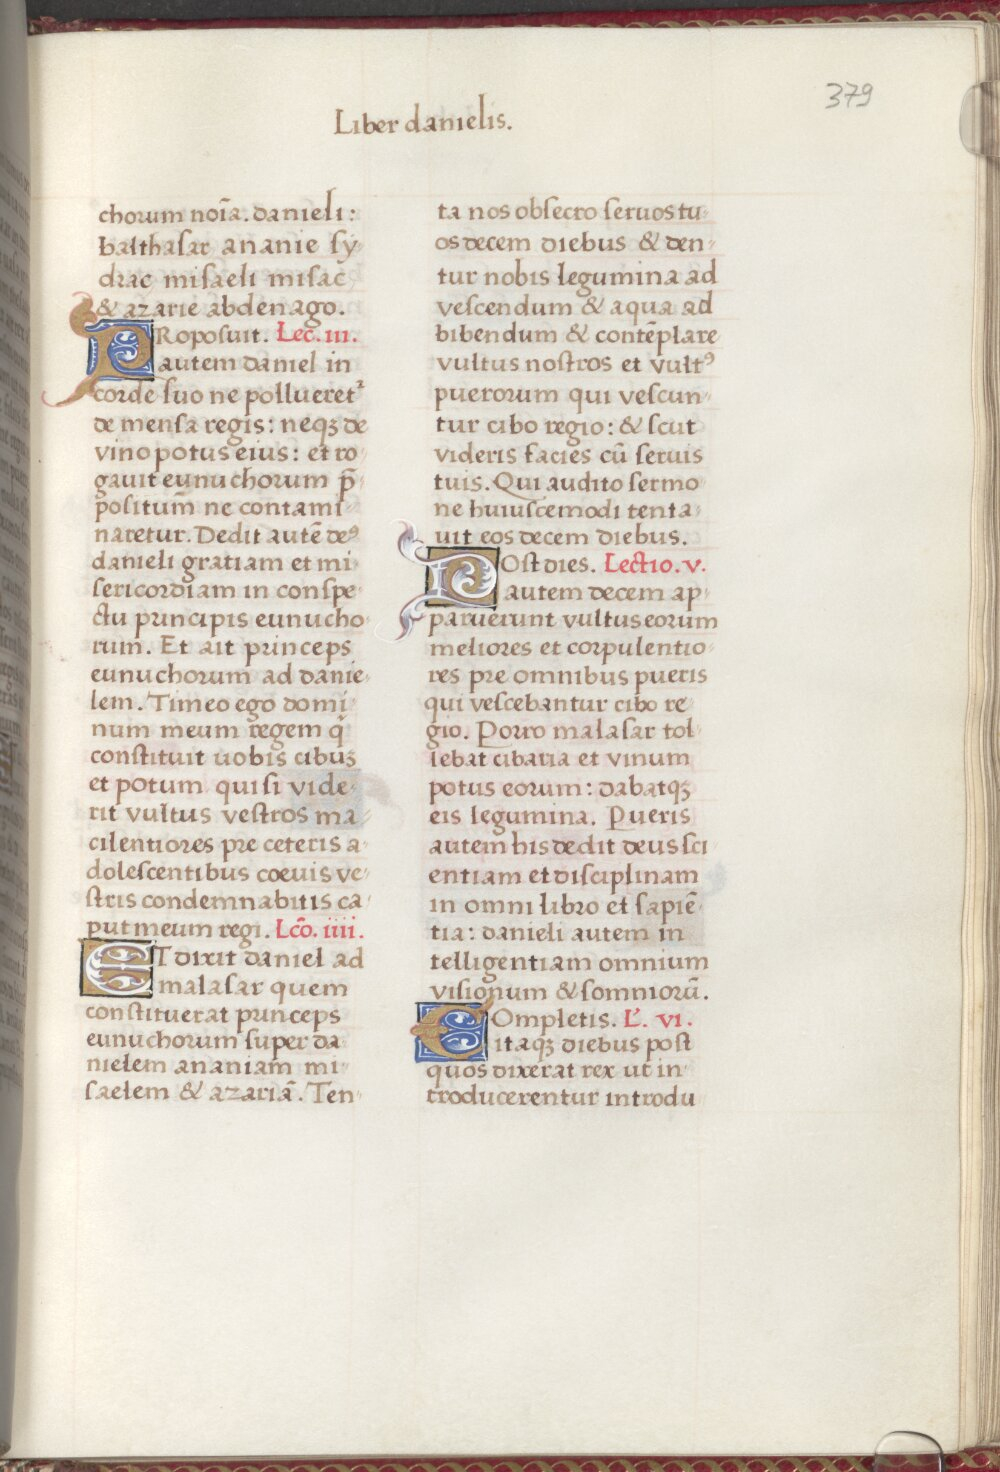 379
Liber danielis.
chorum noīa. danieli:
balthasar ananie sy
drac misaeli misac
& azarie abdenago.
PRoposuit. Lec. iii.
autem daniel in
corde suo ne pollueretꝰ
de mensa regis: neqꝫ de
vino potus eius: et ro
gavit eunuchorum p̄
positum ne contami
naretur. Dedit autē deꝰ
danieli gratiam et mi
sericordiam in conspe
ctu principis eunucho
rum. Et ait princeps
eunuchorum ad danie
lem. Timeo ego domi
num meum regem q̇
constituit uobis cibuꝫ
et potum qui si vide
rit vultus vestros ma
cilentiores pre ceteris a
dolescentibus coevis ve
stris condemnabitis ca
put meum regi. Lcō. iiii.
ET dixit daniel ad
malasar quem
constituerat princeps
eunuchorum super da
nielem ananiam mi
saelem & azariā. Ten
ta nos obsecro servos tu
os decem diebus & den
tur nobis legumina ad
vescendum & aqua ad
bibendum & contēplare
vultus nostros et vultꝰ
puerorum qui vescun
tur cibo regio: & scut
videris facies cū servis
tuis. Qui audito sermo
ne huiuscemodi tenta
vit eos decem diebus.
POst dies. Lectio. v.
autem decem ap
paruerunt vultus eorum
meliores et corpulentio
res pre omnibus pueris
qui vescebantur cibo re
gio. Porro malasar tol
lebat cibaria et vinum
potus eorum: dabatqꝫ
eis legumina. Pueris
autem his dedit deus sci
entiam et disciplinam
in omni libro et sapiē
tia: danieli autem in
telligentiam omnium
visionum & somniorū.
COmpletis. L'. vi.
itaqꝫ diebus post
quos dixerat rex ut in
troducerentur introdu